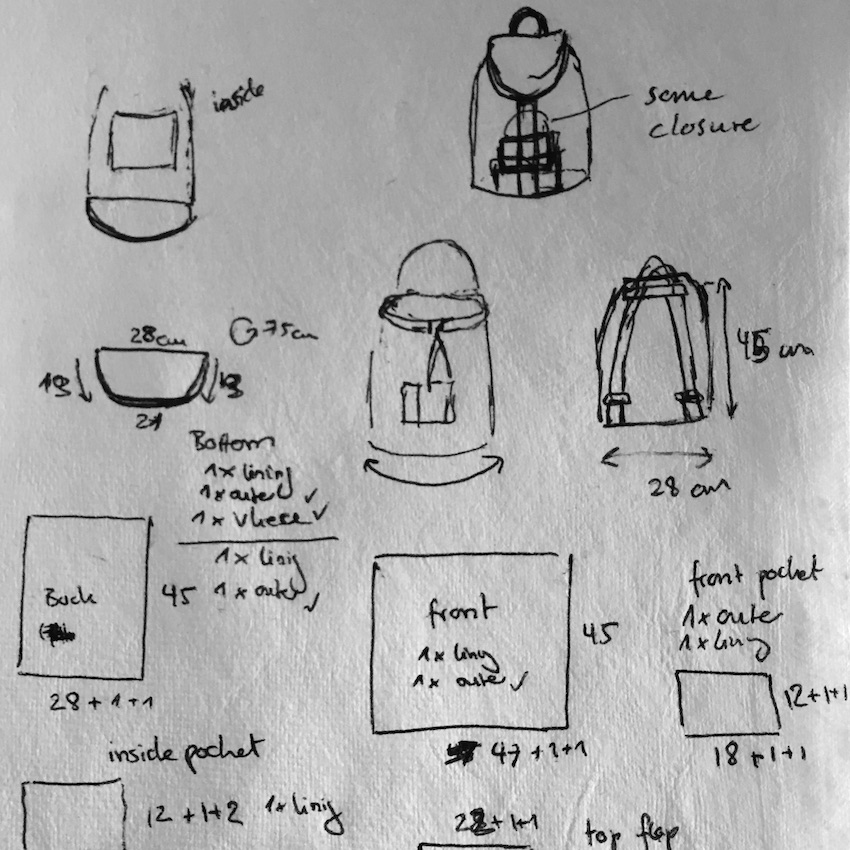 inside
same
closure
28cm
75cm
45 cm
28 cm
Bottom
1x lining
1x outer ✓
1x vliese ✓
1x linig
1x outer ✓
Back
45
28 + 1 + 1
front
1x linig
1x outer ✓
45
47 + 1+1
front pocket
1x outer
1x linig
12+1+1
18+1+1
inside pocket
12 + 1+2 1x linig
+1+1
top flap